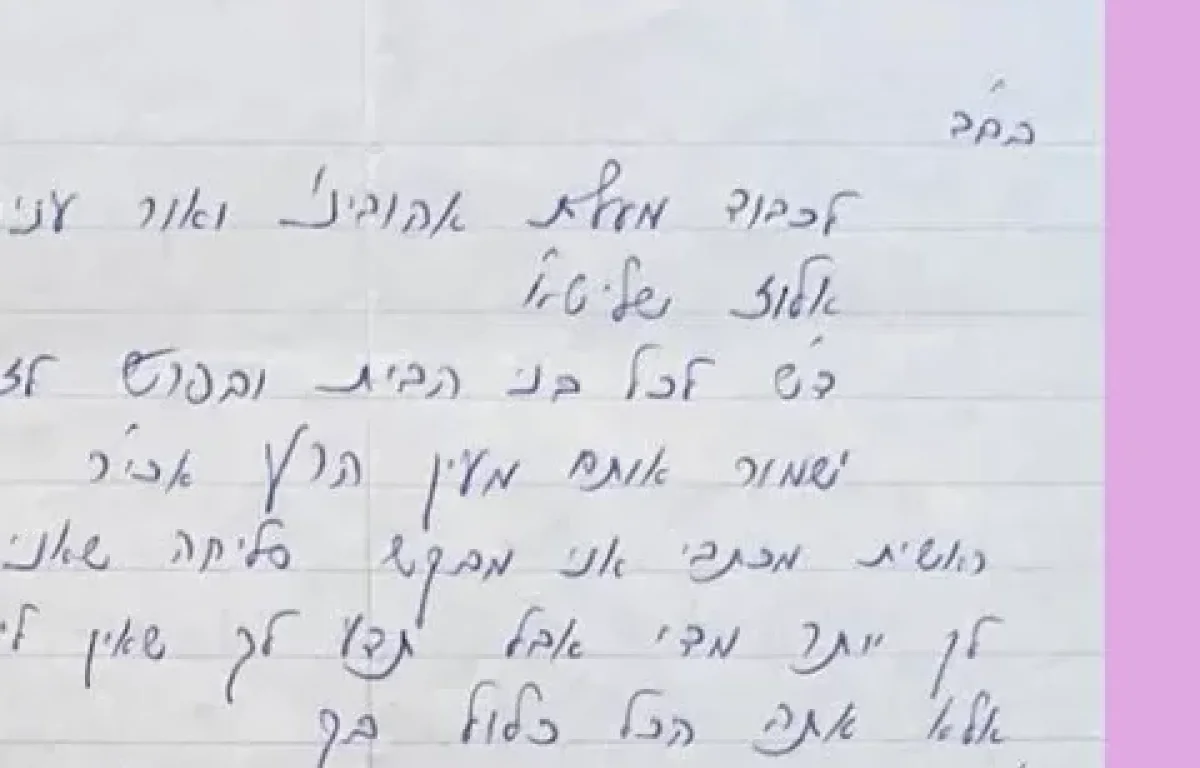 לכבוד מעלת אהובינ' ואור עני
שליט"א
ד"ש לכל בני הבית ובפרט
ישמור אותם מעין הרע אכי"ר
ראשית מכתבי אני מבקש סליחה שאני
לך יותר מדי אבל תדע לך שאין לי
אלא אתה הכל כלול בך